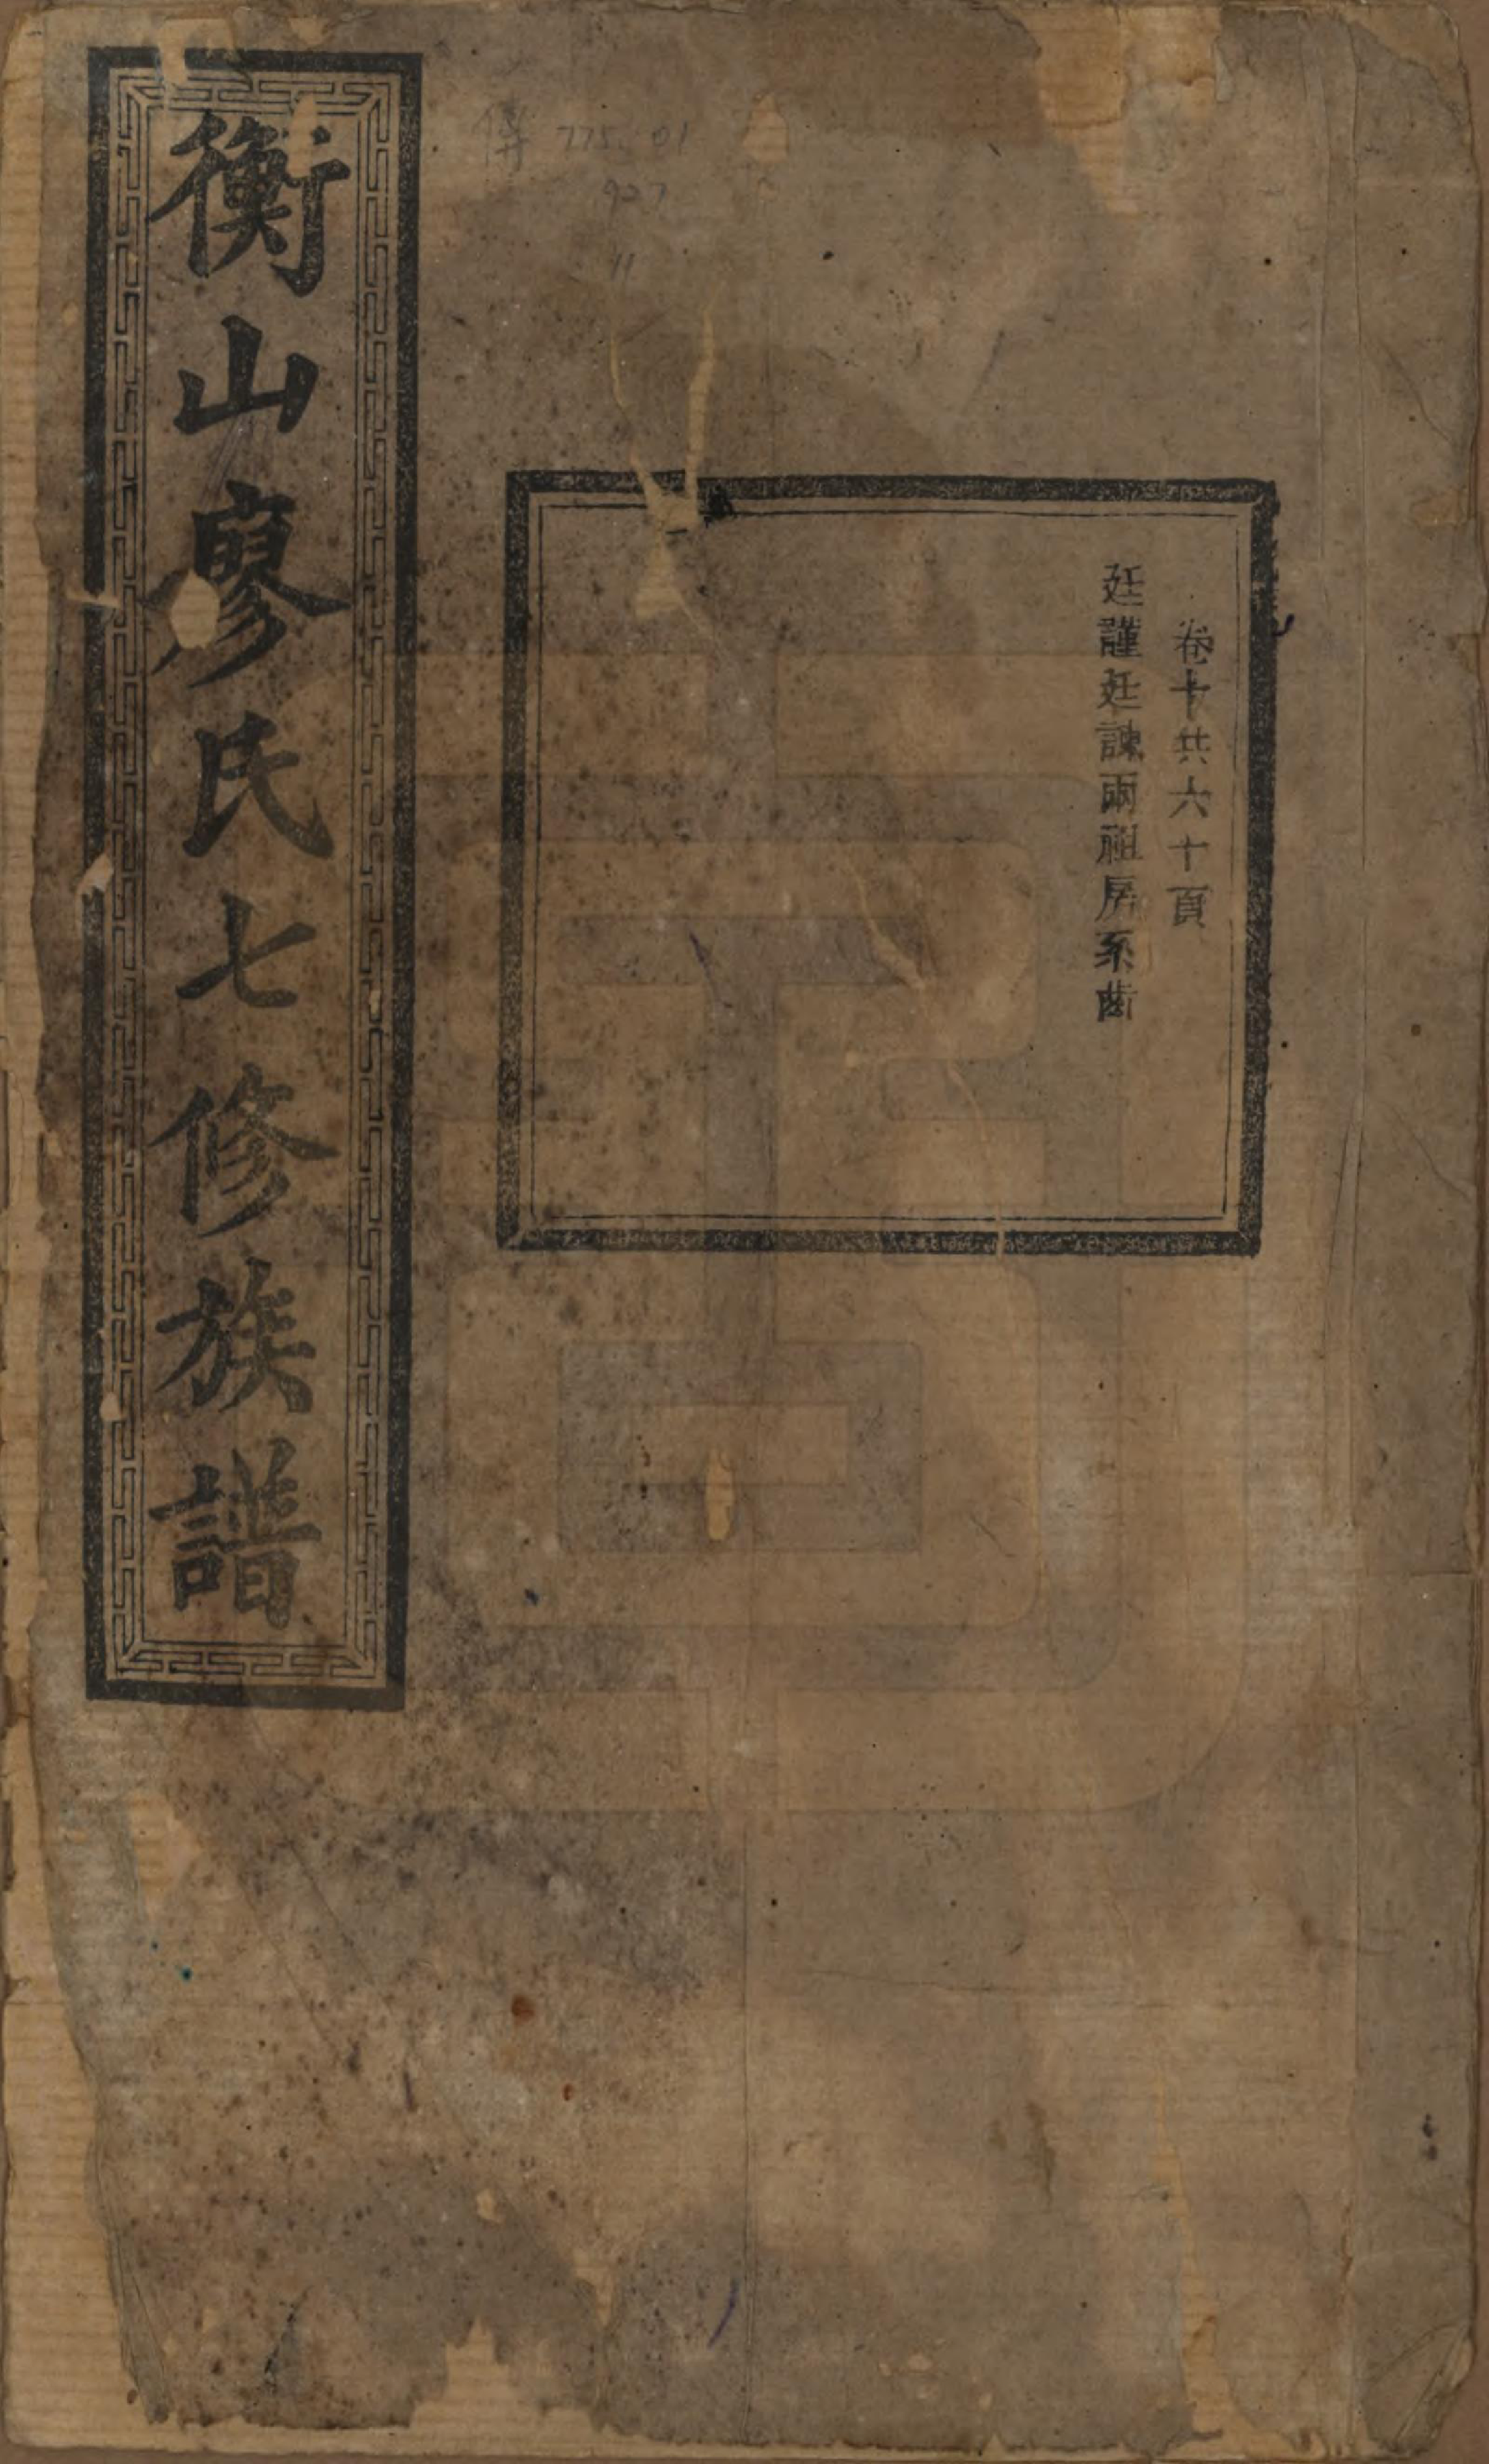 卷十共六十頁
廷謹廷諫兩祖房系齒
衡山廖氏七修族譜
傳 775.01
927
11